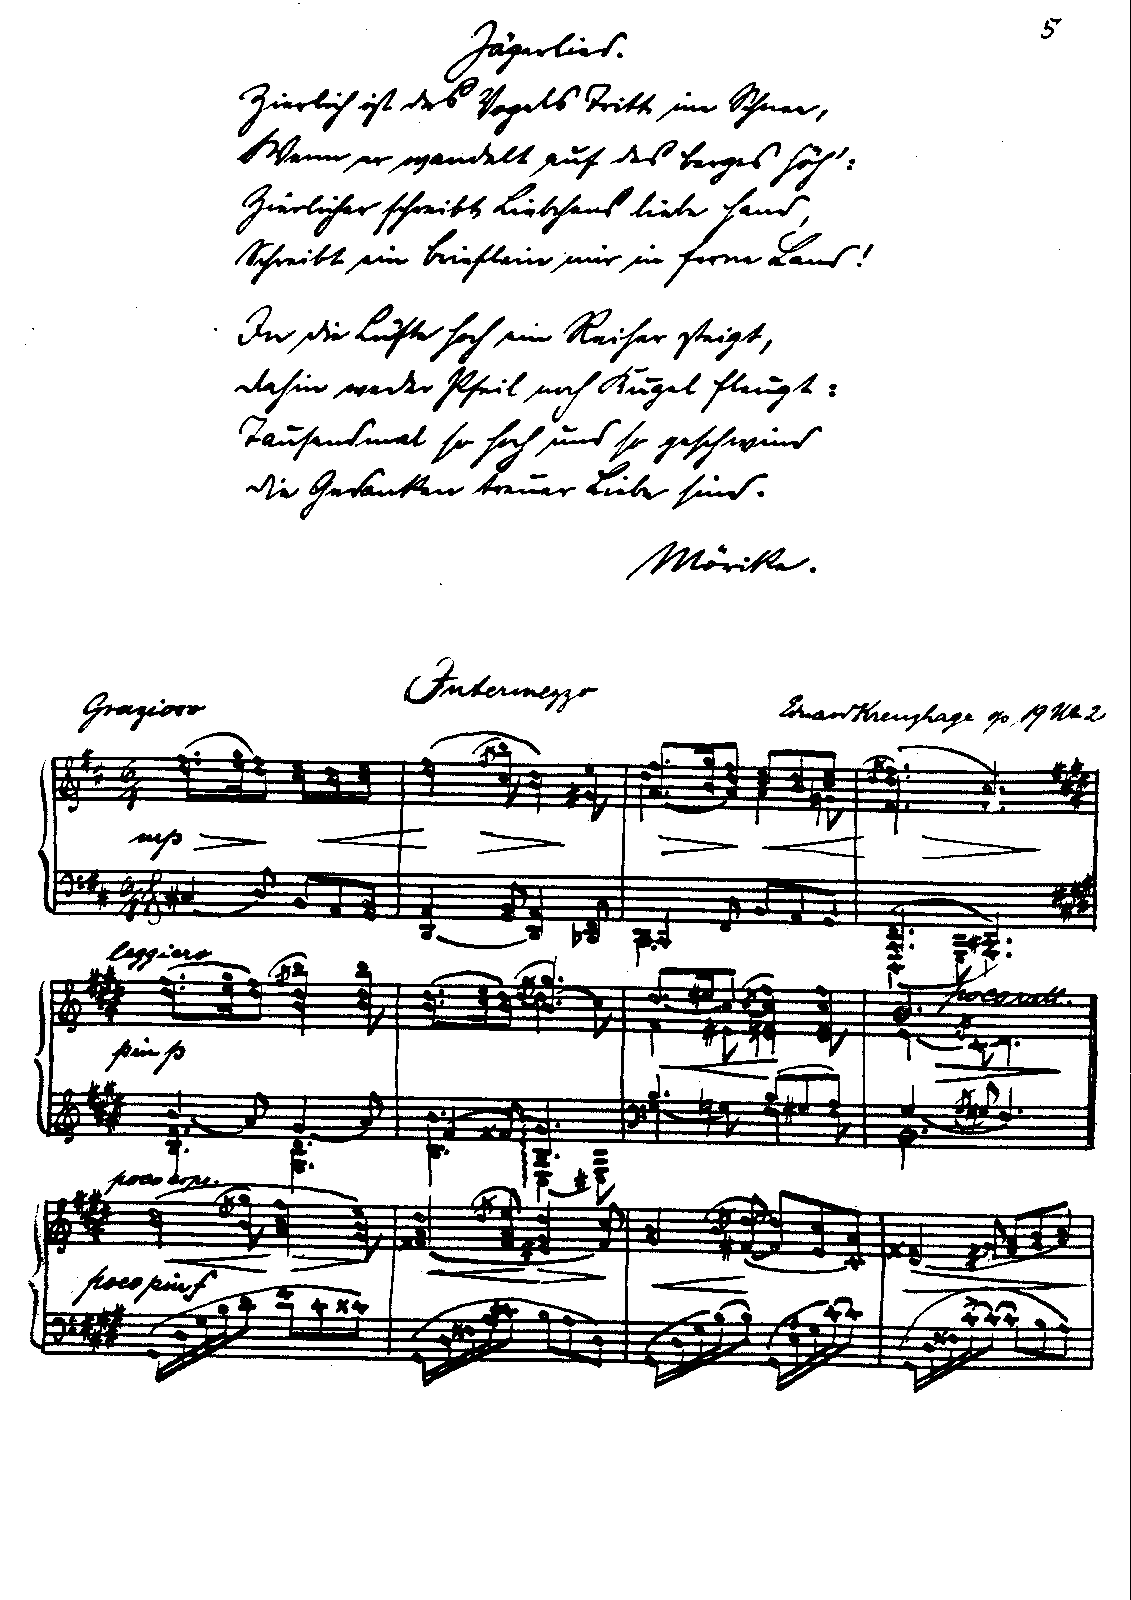 5
Jägerlied.
Zierlich ist des Vogels Tritt im Schnee,
Wenn er wandelt auf des Berges Höh':
Zierlicher schreibt Liebchens liebe Hand,
Schreibt ein Brieflein mir in ferne Land!
In die Lüfte hoch ein Reiher steigt,
dahin weder Pfeil noch Kugel fleugt:
Tausendmal so hoch und so geschwind
die Gedanken treuer Liebe sind.
Mörike.
Intermezzo
Grazioso
Eduard Kreuzhage op. 19 No 2
6
4
mp
6
4
leggiero
poco rall.
più p
poco espr.
poco più f